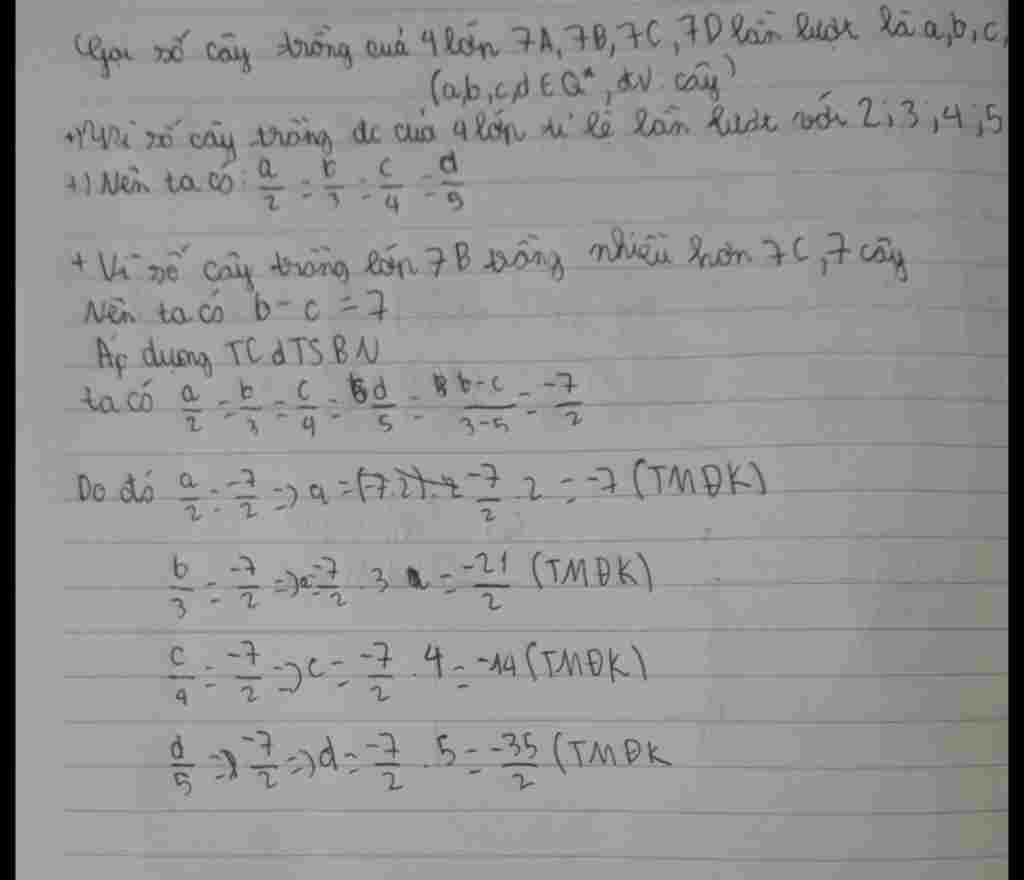 Gọi số cây trồng củả 4 lớp 7A, 7B, 7C, 7D lần lượt là a, b, c,
(a,b,c,d ∈ Q*, đv cây)
+) Vì số cây trồng đc của 4 lớp tỉ lệ lần lượt với 2; 3; 4; 5
+) Nên ta có: a/2 = b/3 = c/4 = d/5
+ Vì số cây trồng lớp 7B trồng nhiều hơn 7C, 7 cây
Nên ta có b - c = 7
Áp dụng TC dTSBN
ta có a/2 = b/3 = c/4 = d/5 = b-c/3-5 = -7/2
Do đó a/2 = -7/2 => a = (-7.2). -7/2 . 2 = -7 (TMĐK)
b/3 = -7/2 => -7/2 . 3 = -21/2 (TMĐK)
c/4 = -7/2 => c = -7/2 . 4 = -14 (TMĐK)
d/5 => -7/2 => d = -7/2 . 5 = -35/2 (TMĐK